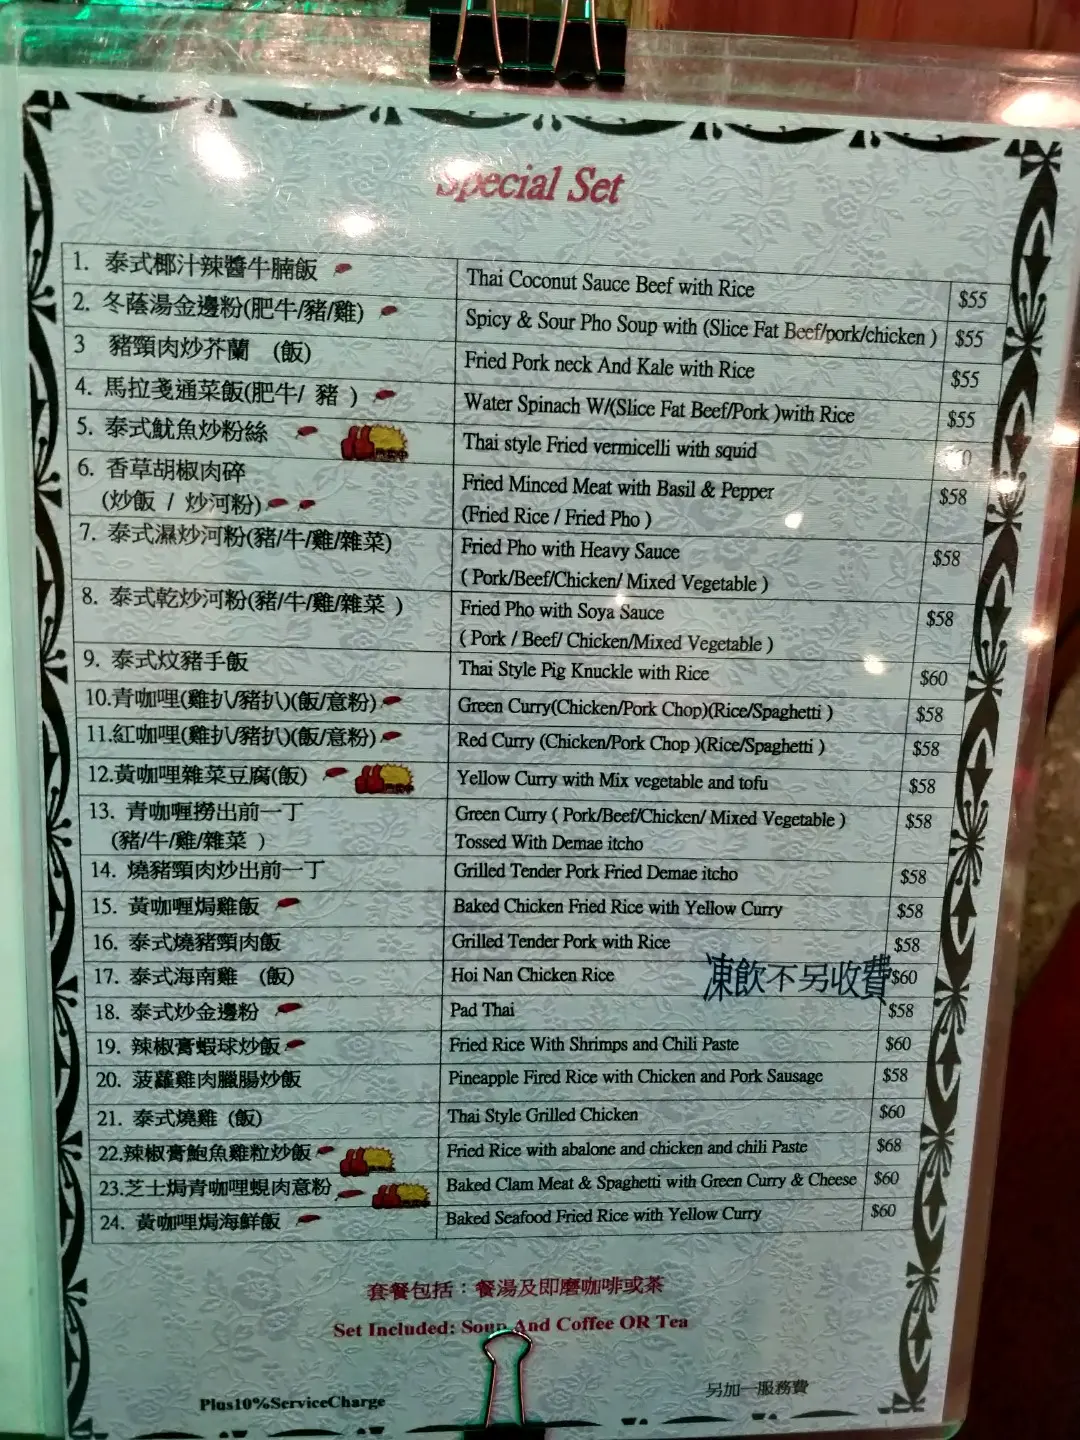 Special Set
1. 泰式椰汁辣醬牛腩飯 Thai Coconut Sauce Beef with Rice $55
2. 冬蔭湯金邊粉(肥牛/豬/雞) Spicy & Sour Pho Soup with (Slice Fat Beef/pork/chicken ) $55
3 豬頸肉炒芥蘭 (飯) Fried Pork neck And Kale with Rice $55
4. 馬拉戔通菜飯(肥牛/ 豬 ) Water Spinach W/(Slice Fat Beef/Pork )with Rice $55
5. 泰式魷魚炒粉絲 Thai style Fried vermicelli with squid
6. 香草胡椒肉碎 Fried Minced Meat with Basil & Pepper $58
(炒飯 / 炒河粉) (Fried Rice / Fried Pho )
7. 泰式濕炒河粉(豬/牛/雞/雜菜) Fried Pho with Heavy Sauce $58
( Pork/Beef/Chicken/ Mixed Vegetable )
8. 泰式乾炒河粉(豬/牛/雞/雜菜 ) Fried Pho with Soya Sauce $58
( Pork / Beef/ Chicken/Mixed Vegetable )
9. 泰式炆豬手飯 Thai Style Pig Knuckle with Rice $60
10.青咖哩(雞扒/豬扒)(飯/意粉) Green Curry(Chicken/Pork Chop)(Rice/Spaghetti ) $58
11.紅咖哩(雞扒/豬扒)(飯/意粉) Red Curry (Chicken/Pork Chop )(Rice/Spaghetti ) $58
12.黃咖哩雜菜豆腐(飯) Yellow Curry with Mix vegetable and tofu $58
13. 青咖喱撈出前一丁 Green Curry ( Pork/Beef/Chicken/ Mixed Vegetable ) $58
(豬/牛/雞/雜菜 ) Tossed With Demae itcho
14. 燒豬頸肉炒出前一丁 Grilled Tender Pork Fried Demae itcho $58
15. 黃咖喱焗雞飯 Baked Chicken Fried Rice with Yellow Curry $58
16. 泰式燒豬頸肉飯 Grilled Tender Pork with Rice $58
17. 泰式海南雞 (飯) Hoi Nan Chicken Rice 凍飲不另收費 $60
18. 泰式炒金邊粉 Pad Thai $58
19. 辣椒膏蝦球炒飯 Fried Rice With Shrimps and Chili Paste $60
20. 菠蘿雞肉臘腸炒飯 Pineapple Fired Rice with Chicken and Pork Sausage $58
21. 泰式燒雞 (飯) Thai Style Grilled Chicken $60
22.辣椒膏鮑魚雞粒炒飯 Fried Rice with abalone and chicken and chili Paste $68
23.芝士焗青咖哩蜆肉意粉 Baked Clam Meat & Spaghetti with Green Curry & Cheese $60
24. 黃咖哩焗海鮮飯 Baked Seafood Fried Rice with Yellow Curry $60
套餐包括：餐湯及即磨咖啡或茶
Set Included: Soup And Coffee OR Tea
Plus10%ServiceCharge 另加一服務費